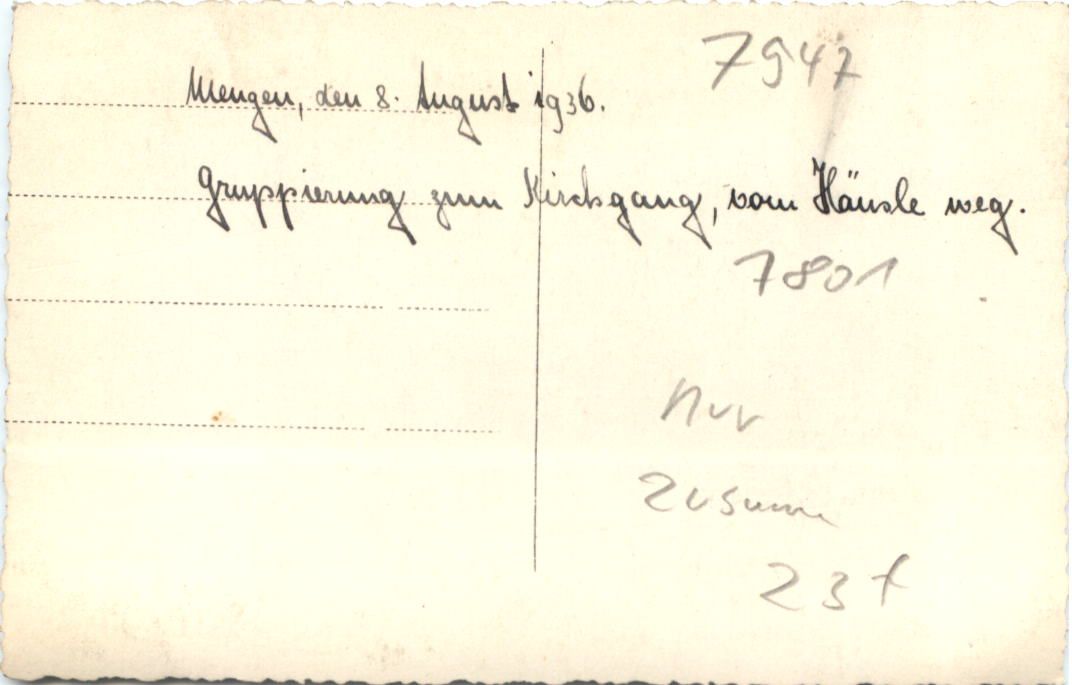 7947
Mengen, den 8. August 1936.
Gruppierung zum Kirchgang, vom Häusle weg.
7801
nur
23